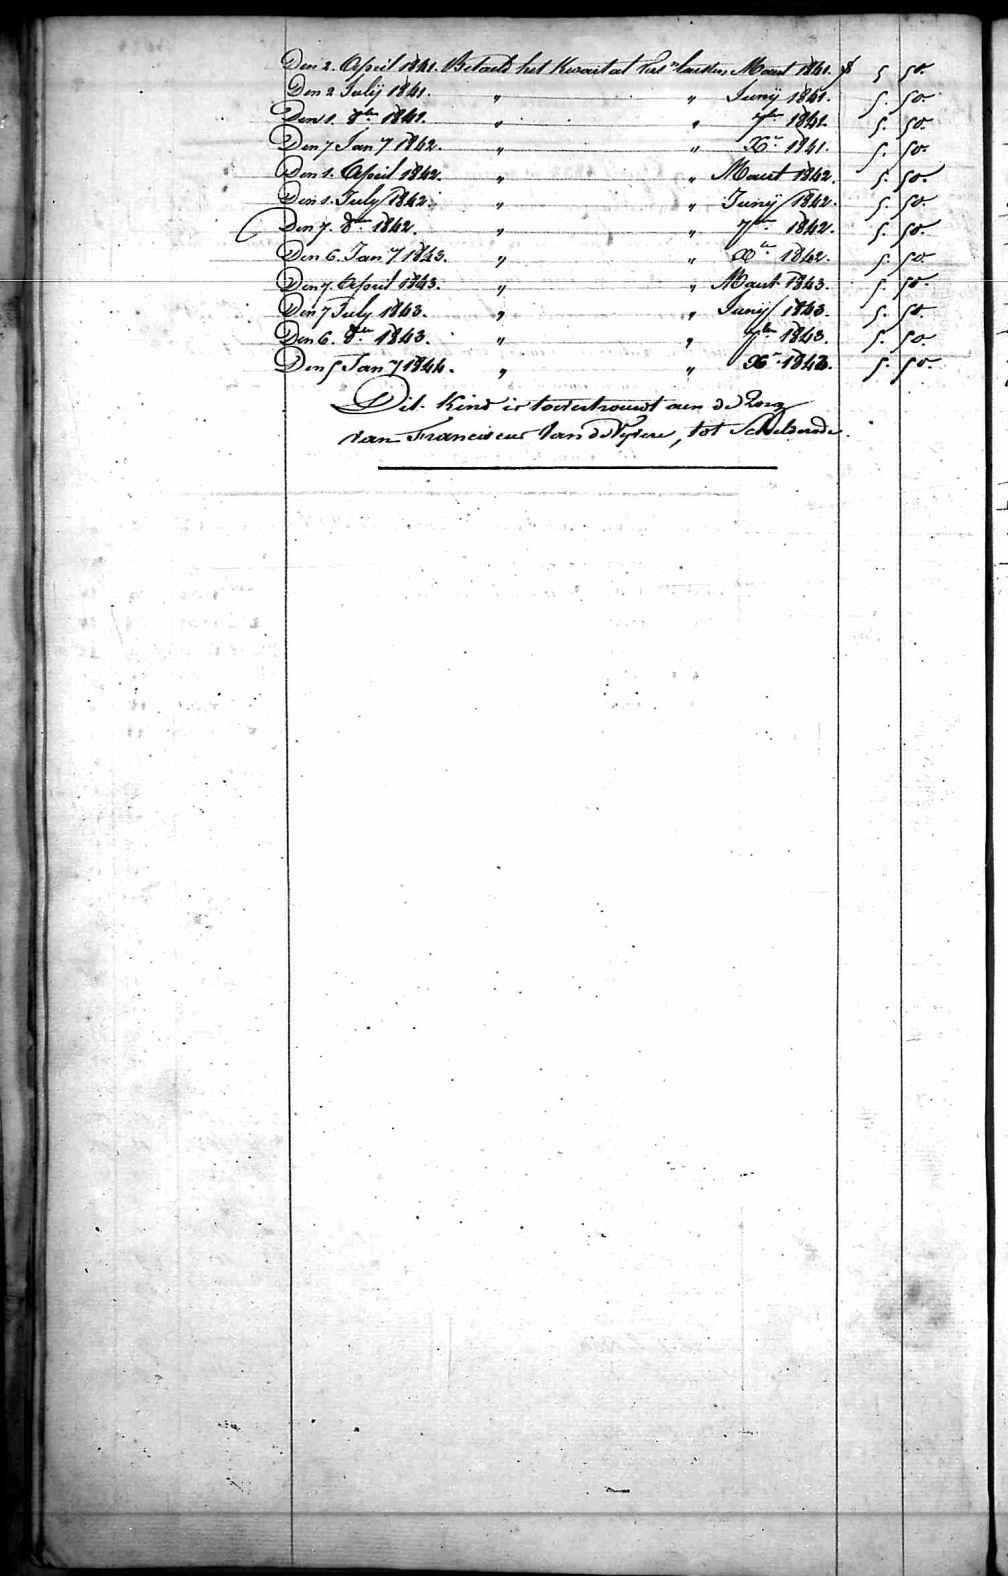 Den 2. April 1841. Betaeld het Kwartael laetsten Maert 1841. f 5 50.
Den 2 Julÿ 1841. " " Junÿ 1841. 5. 50.
Den 1. 8ber 1841. " " 7ber 1841. 5. 50.
Den 7 Jany 1842. " " Xr 1841. 5. 50.
Den 1. April 1842. " " Maert 1842. 5. 50.
Den 1. July 1842. " " Junÿ 1842. 5. 50.
Den 7. 8ber 1842. " " 7ber 1842. 5. 50.
Den 6. Jany 1843. " " Xber 1842. 5. 50.
Den 7. April 1843. " " Maert 1843. 5. 50.
Den 7 July 1843. " " Junÿ 1843. 5. 50.
Den 6. 8ber 1843. " " 7ber 1843. 5. 50
Den 5 Jany 1844. " " Xr 1843. 5. 50.
Dit Kind is toevertrouwt aen de Zorg
van Franciscus Van de Vyvere, tot Schelderode.